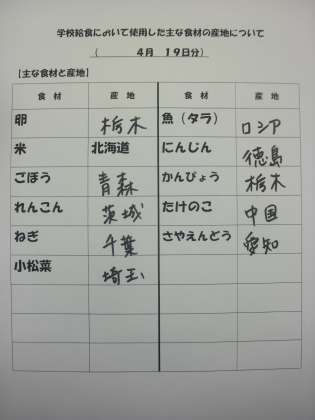 学校給食において使用した主な食材の産地について
（　４月　１９日分）
【主な食材と産地】
食材　産地　食材　産地
卵　栃木　魚（タラ）　ロシア
米　北海道　にんじん　徳島
ごぼう　青森　かんぴょう　栃木
れんこん　茨城　たけのこ　中国
ねぎ　千葉　さやえんどう　愛知
小松菜　埼玉